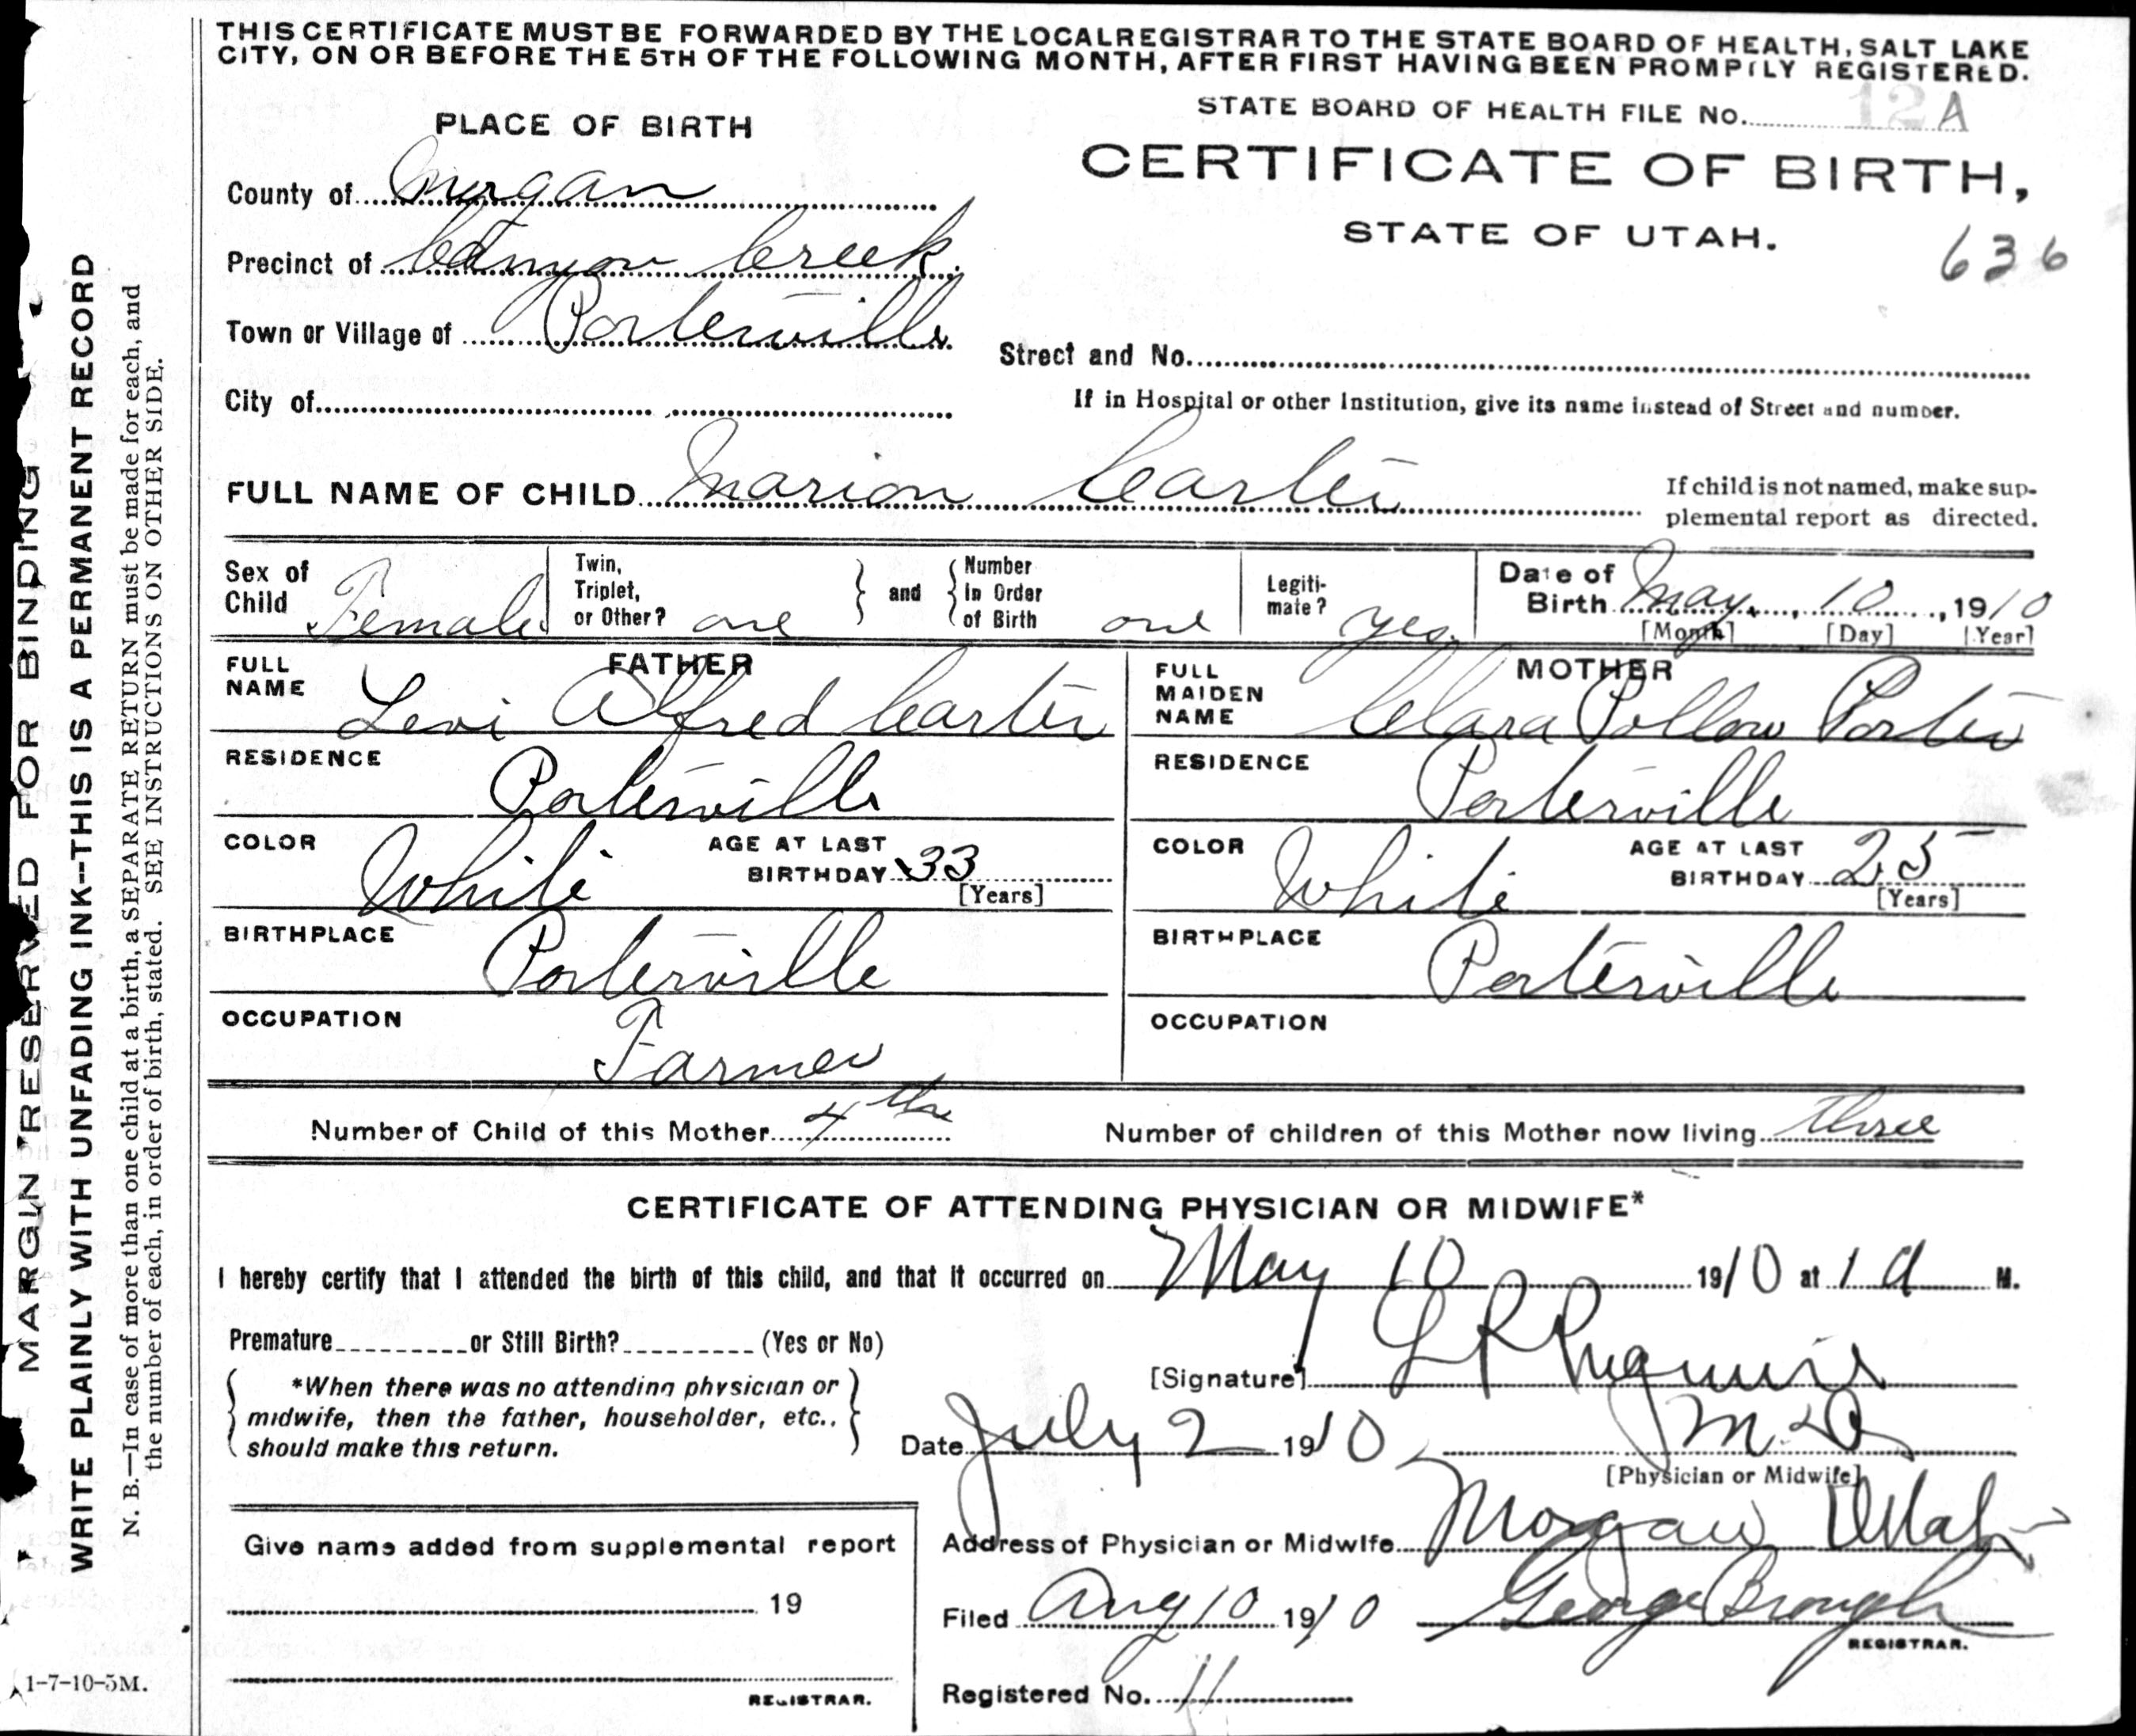 THIS CERTIFICATE MUST BE FORWARDED BY THE LOCAL REGISTRAR TO THE STATE BOARD OF HEALTH, SALT LAKE
CITY, ON OR BEFORE THE 5TH OF THE FOLLOWING MONTH, AFTER FIRST HAVING BEEN PROMPTLY REGISTERED.
STATE BOARD OF HEALTH FILE No. 12 A
PLACE OF BIRTH
CERTIFICATE OF BIRTH,
STATE OF UTAH.
636
County of Morgan
Precinct of Canyon Creek
Town or Village of Porterville
Street and No.
City of
If in Hospital or other Institution, give its name instead of Street and number.
FULL NAME OF CHILD Marion Carter
If child is not named, make sup-
plemental report as directed.
Sex of Child Female
Twin, Triplet, or Other? one
and
Number In Order of Birth one
Legiti-mate? yes.
Date of Birth May, 10, 1910
[Month] [Day] [Year]
FATHER
FULL NAME Levi Alfred Carter
RESIDENCE Porterville
COLOR White
AGE AT LAST BIRTHDAY 33
[Years]
BIRTHPLACE Porterville
OCCUPATION Farmer
MOTHER
FULL MAIDEN NAME Clara Porter
RESIDENCE Porterville
COLOR White
AGE AT LAST BIRTHDAY 25
[Years]
BIRTHPLACE Porterville
OCCUPATION
Number of Child of this Mother 4th
Number of children of this Mother now living three
CERTIFICATE OF ATTENDING PHYSICIAN OR MIDWIFE*
I hereby certify that I attended the birth of this child, and that it occurred on May 10 1910 at 1 a M.
Premature or Still Birth? (Yes or No)
*When there was no attending physician or
midwife, then the father, householder, etc.,
should make this return.
[Signature] L R
Date July 2 1910
M.D.
[Physician or Midwife]
Address of Physician or Midwife Morgan Utah
Filed Aug 10 1910
George Brough
REGISTRAR.
Registered No. 11
Give name added from supplemental report
19
REGISTRAR.
MARGIN RESERVED FOR BINDING
WRITE PLAINLY WITH UNFADING INK--THIS IS A PERMANENT RECORD
N. B.—In case of more than one child at a birth, a SEPARATE RETURN must be made for each, and
the number of each, in order of birth, stated. SEE INSTRUCTIONS ON OTHER SIDE.
1-7-10-5M.